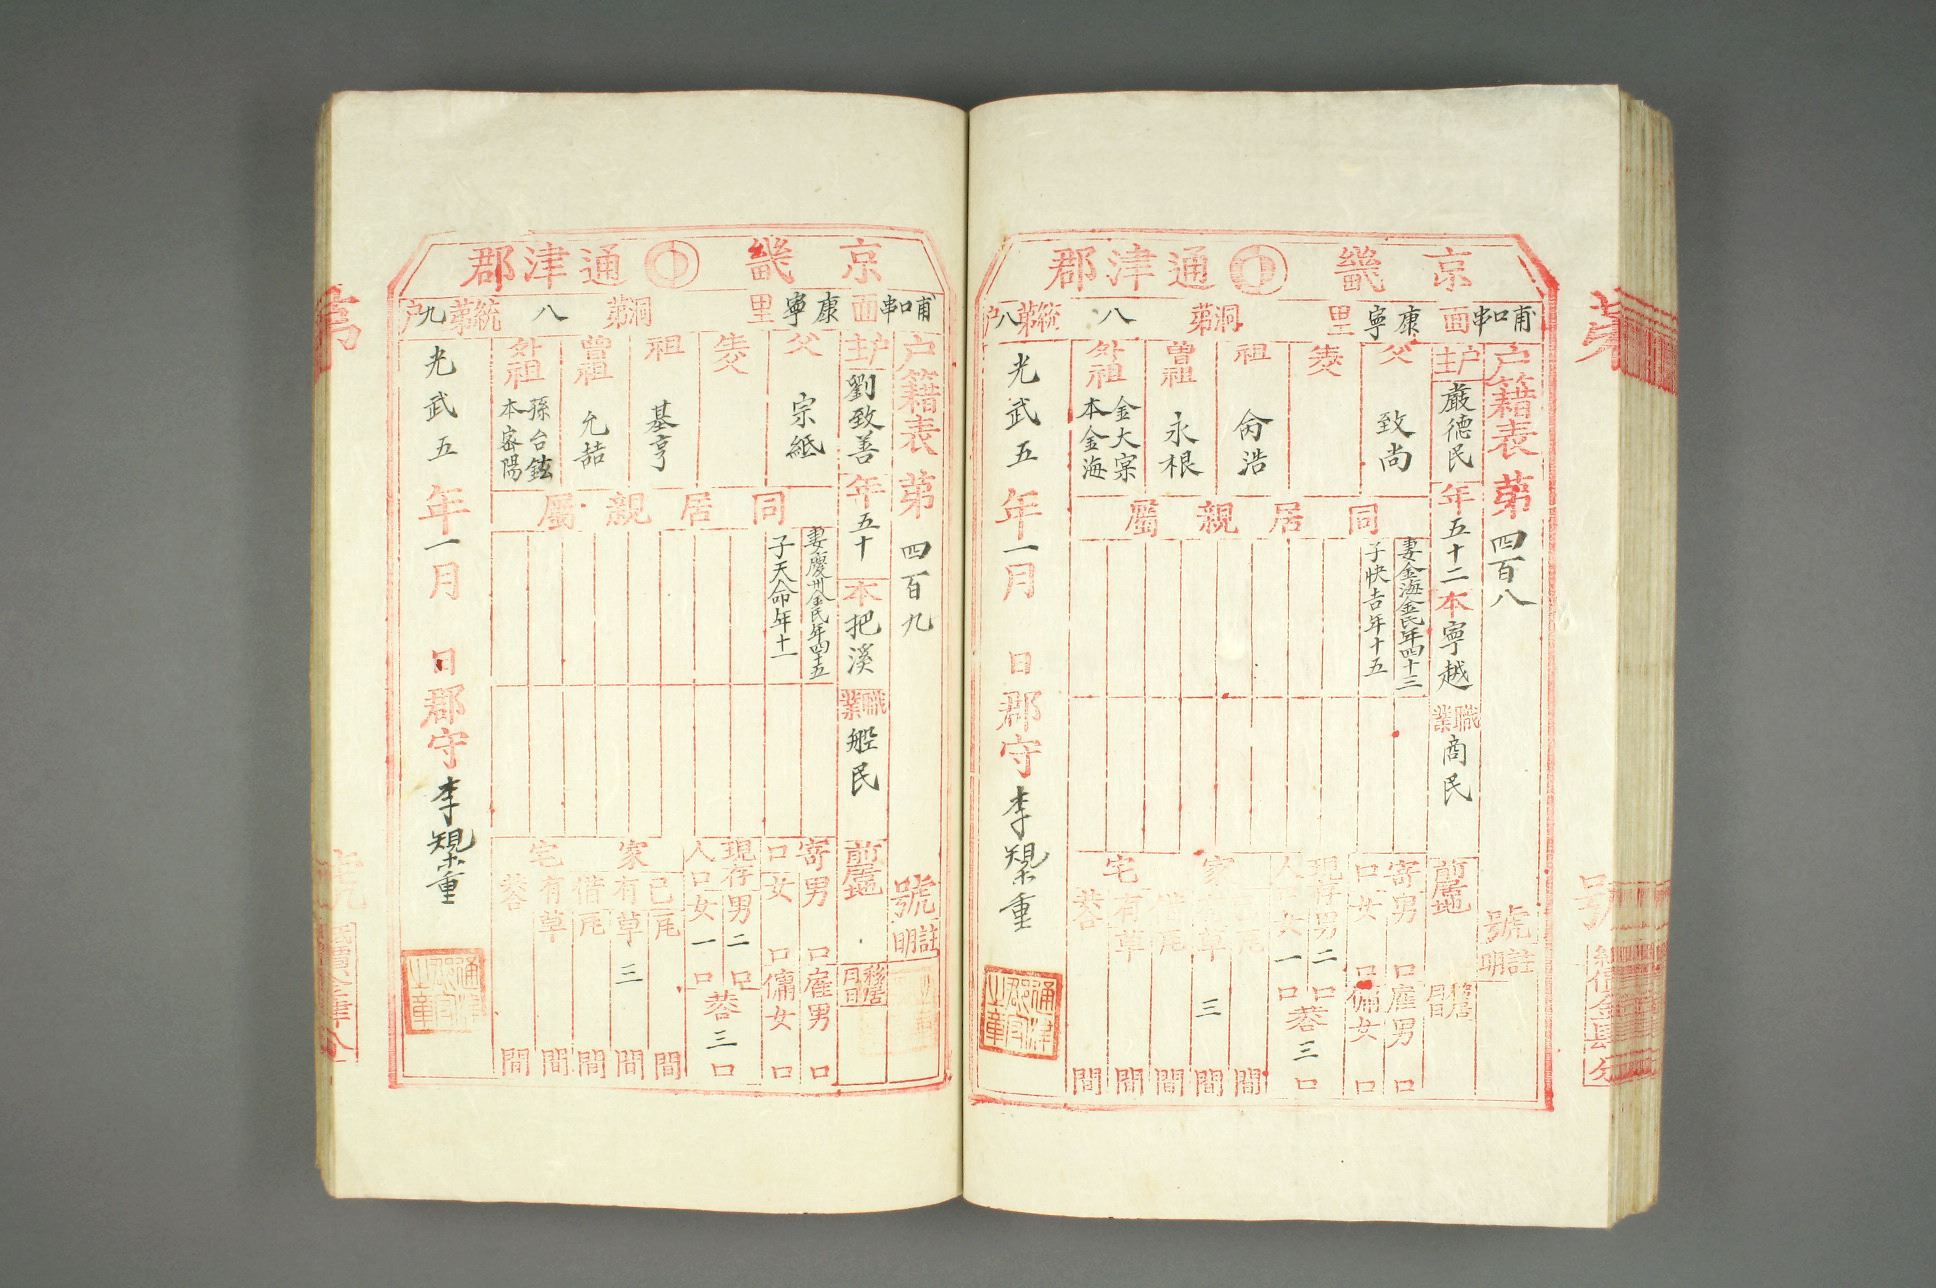 京畿 通津郡
甫口串面康寧里 洞第八統第八户
户籍表第四百八號
註明
户主嚴德民年五十二本寧越職業商民
前居地
移居月日
父致尚
生父
祖 浩
曾祖永根
外祖金大寀本金海
同居親屬
妻金海金氏年四十三
子快吉年十五
寄口男口雇男口
女口傭女口
現存人口男二口女一口 三口
家有瓦間
草三間
借瓦間
宅有草間
間
光武五年一月 日郡守李 重
通津郡守之章
京畿 通津郡
甫口串面康寧里 洞第八統第九户
户籍表第四百九號
註明
户主劉致善年五十本把溪職業船民
前居地
移居月日
父宗
生父
祖基亨
曾祖允喆
外祖孫台鉉本密陽
同居親屬
妻慶州金氏年四十五
子天命年十一
寄口男口雇男口
女口傭女口
現存人口男二口女一口 三口
家有己瓦間
草三間
借瓦間
宅有草間
間
光武五年一月 日郡守李 重
通津郡守之章